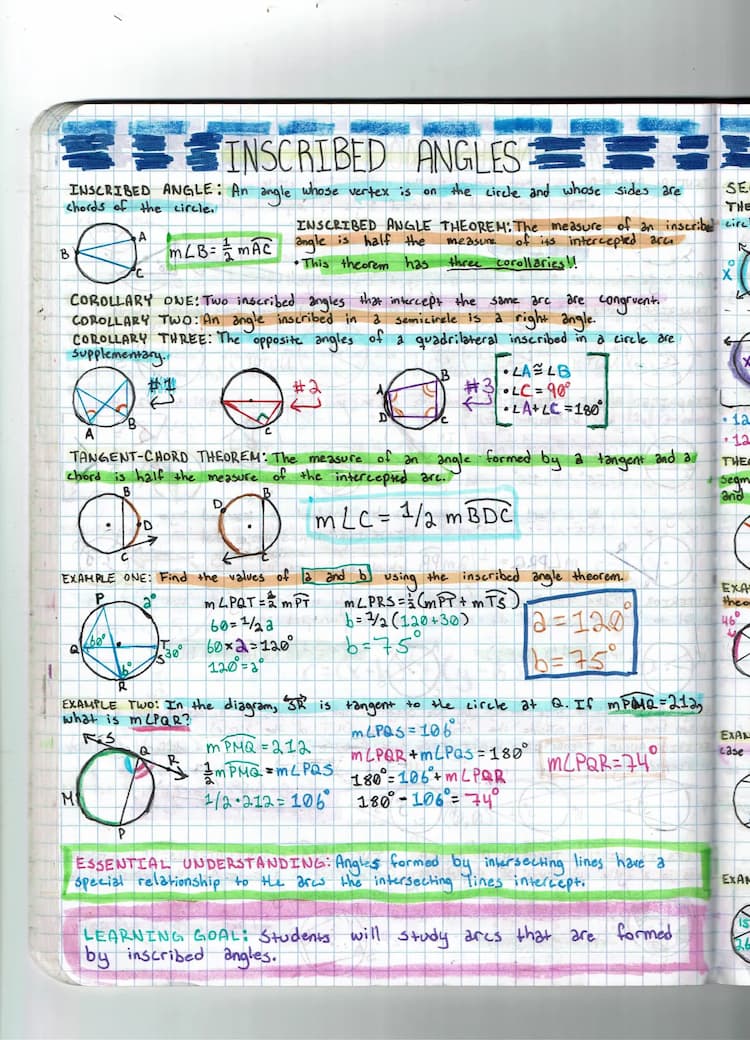 INSCRIBED ANGLES
INSCRIBED ANGLE: An angle whose vertex is on the circle and whose sides are
chords of the circle.
INSCRIBED ANGLE THEOREM: The measure of an inscribed
angle is half the measure of its intercepted arc.
• This theorem has three corollaries!!
A
B
C
m∠B = 1/2 mAC
COROLLARY ONE: Two inscribed angles that intercept the same arc are congruent.
COROLLARY TWO: An angle inscribed in a semicircle is a right angle.
COROLLARY THREE: The opposite angles of a quadrilateral inscribed in a circle are
supplementary.
#1
A
B
#2
C
A
B
C
D
#3
• ∠A ≅ ∠B
• ∠C = 90°
• ∠A + ∠C = 180°
TANGENT-CHORD THEOREM: The measure of an angle formed by a tangent and a
chord is half the measure of the intercepted arc.
B
D
C
B
D
C
m∠C = 1/2 mBDC
EXAMPLE ONE: Find the values of a and b using the inscribed angle theorem.
P
a°
Q
60°
T
S
30°
b°
R
m∠PQT = 1/2 mPT
60 = 1/2 a
60 × 2 = 120°
120° = a°
m∠PRS = 1/2 (mPT + mTS)
b = 1/2 (120+30)
b = 75°
a = 120°
b = 75°
EXAMPLE TWO: In the diagram, SR is tangent to the circle at Q. If mPMQ = 212,
what is m∠PQR?
S
Q
R
M
P
mPMQ = 212
1/2 mPMQ = m∠PQS
1/2 · 212 = 106°
m∠PQS = 106°
m∠PQR + m∠PQS = 180°
180° = 106° + m∠PQR
180° - 106° = 74°
m∠PQR = 74°
ESSENTIAL UNDERSTANDING: Angles formed by intersecting lines have a
special relationship to the arcs the intersecting lines intercept.
LEARNING GOAL: Students will study arcs that are formed
by inscribed angles.
SE
THE
circ
x°
• 12
• 12
THE
segm
and
EXA
theo
46°
EXAM
case
EXAM
15
26